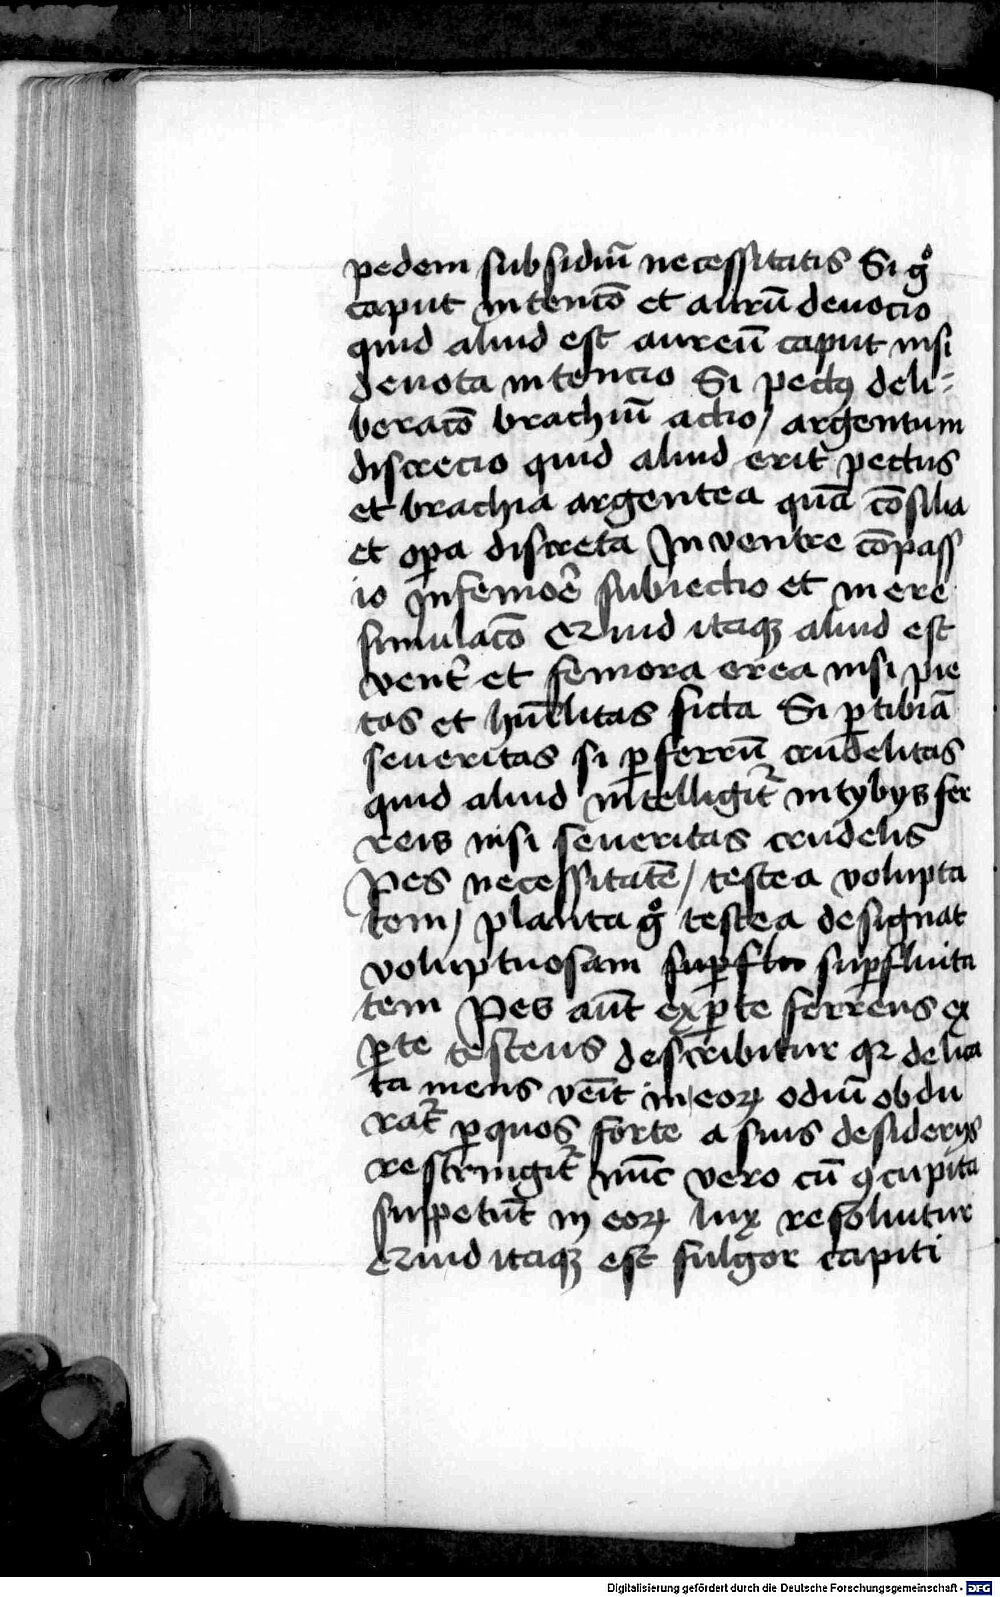 pedem subsidiū necessitatis Si gͦ
caput intencō et aurū deuocio
quid aliud est aureū caput nisi
deuota intencio Si pectꝰ deli⸗
beracō brachiū actio / argentum
discrecio quid aliud erit pectus
et brachia argentea quā cōsilia
et oꝑa discreta In ventre cōpass
io In femoꝛē subiectio et in ere
simulacō Quid itaqꝫ aliud est
vent̄ et femora erea nisi pie
tas et hūīlitas ficta Si ꝑ tibiā
seueritas si ꝑ ferrū crudelitas
quid aliud intelligit᷑ in tybijs fer
reis nisi seueritas crudelis
Pes necessitatē / testea volupta
tem / planta gͦ testea designat
voluptuosam suꝑflu suꝑfluita
tem Pes aūt ex ꝑte ferreus ex
ꝑte testeus describitur qꝛ delica
ta mens veīt in eoꝝ odiū obdu
rat᷑ ꝑ quos forte a suis desiderijs
restringit᷑ nūc vero cū ꝯcupita
suppetūt in eoꝝ lux resoluitur
Quid itaqꝫ est fulgor capiti
Digitalisierung gefördert durch die Deutsche Forschungsgemeinschaft - DFG